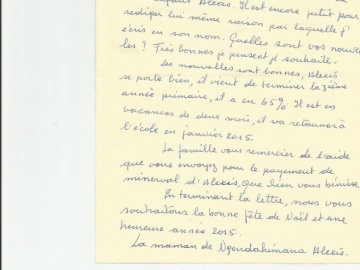 enfant Alexis. Il est encore petit pour
rédiger lui même raison par laquelle j'
écris en son nom. Quelles sont vos nouvel
les ? Très bonnes je pense et je souhaite.
Les nouvelles sont bonnes, Alexis
se porte bien, il vient de terminer la 3ième
année primaire, il a eu 65%. Il est en
vacances de deux mois, il va retourner à
l'école en janvier 2015.
La famille vous remercier de l'aide
que vous envoyez pour le payement de
minerval d'Alexis, que Dieu vous bénisse.
En terminant la lettre, nous vous
souhaitons la bonne fête de Noël et une
heureuse année 2015.
La maman de Ngendahimana Alexis.